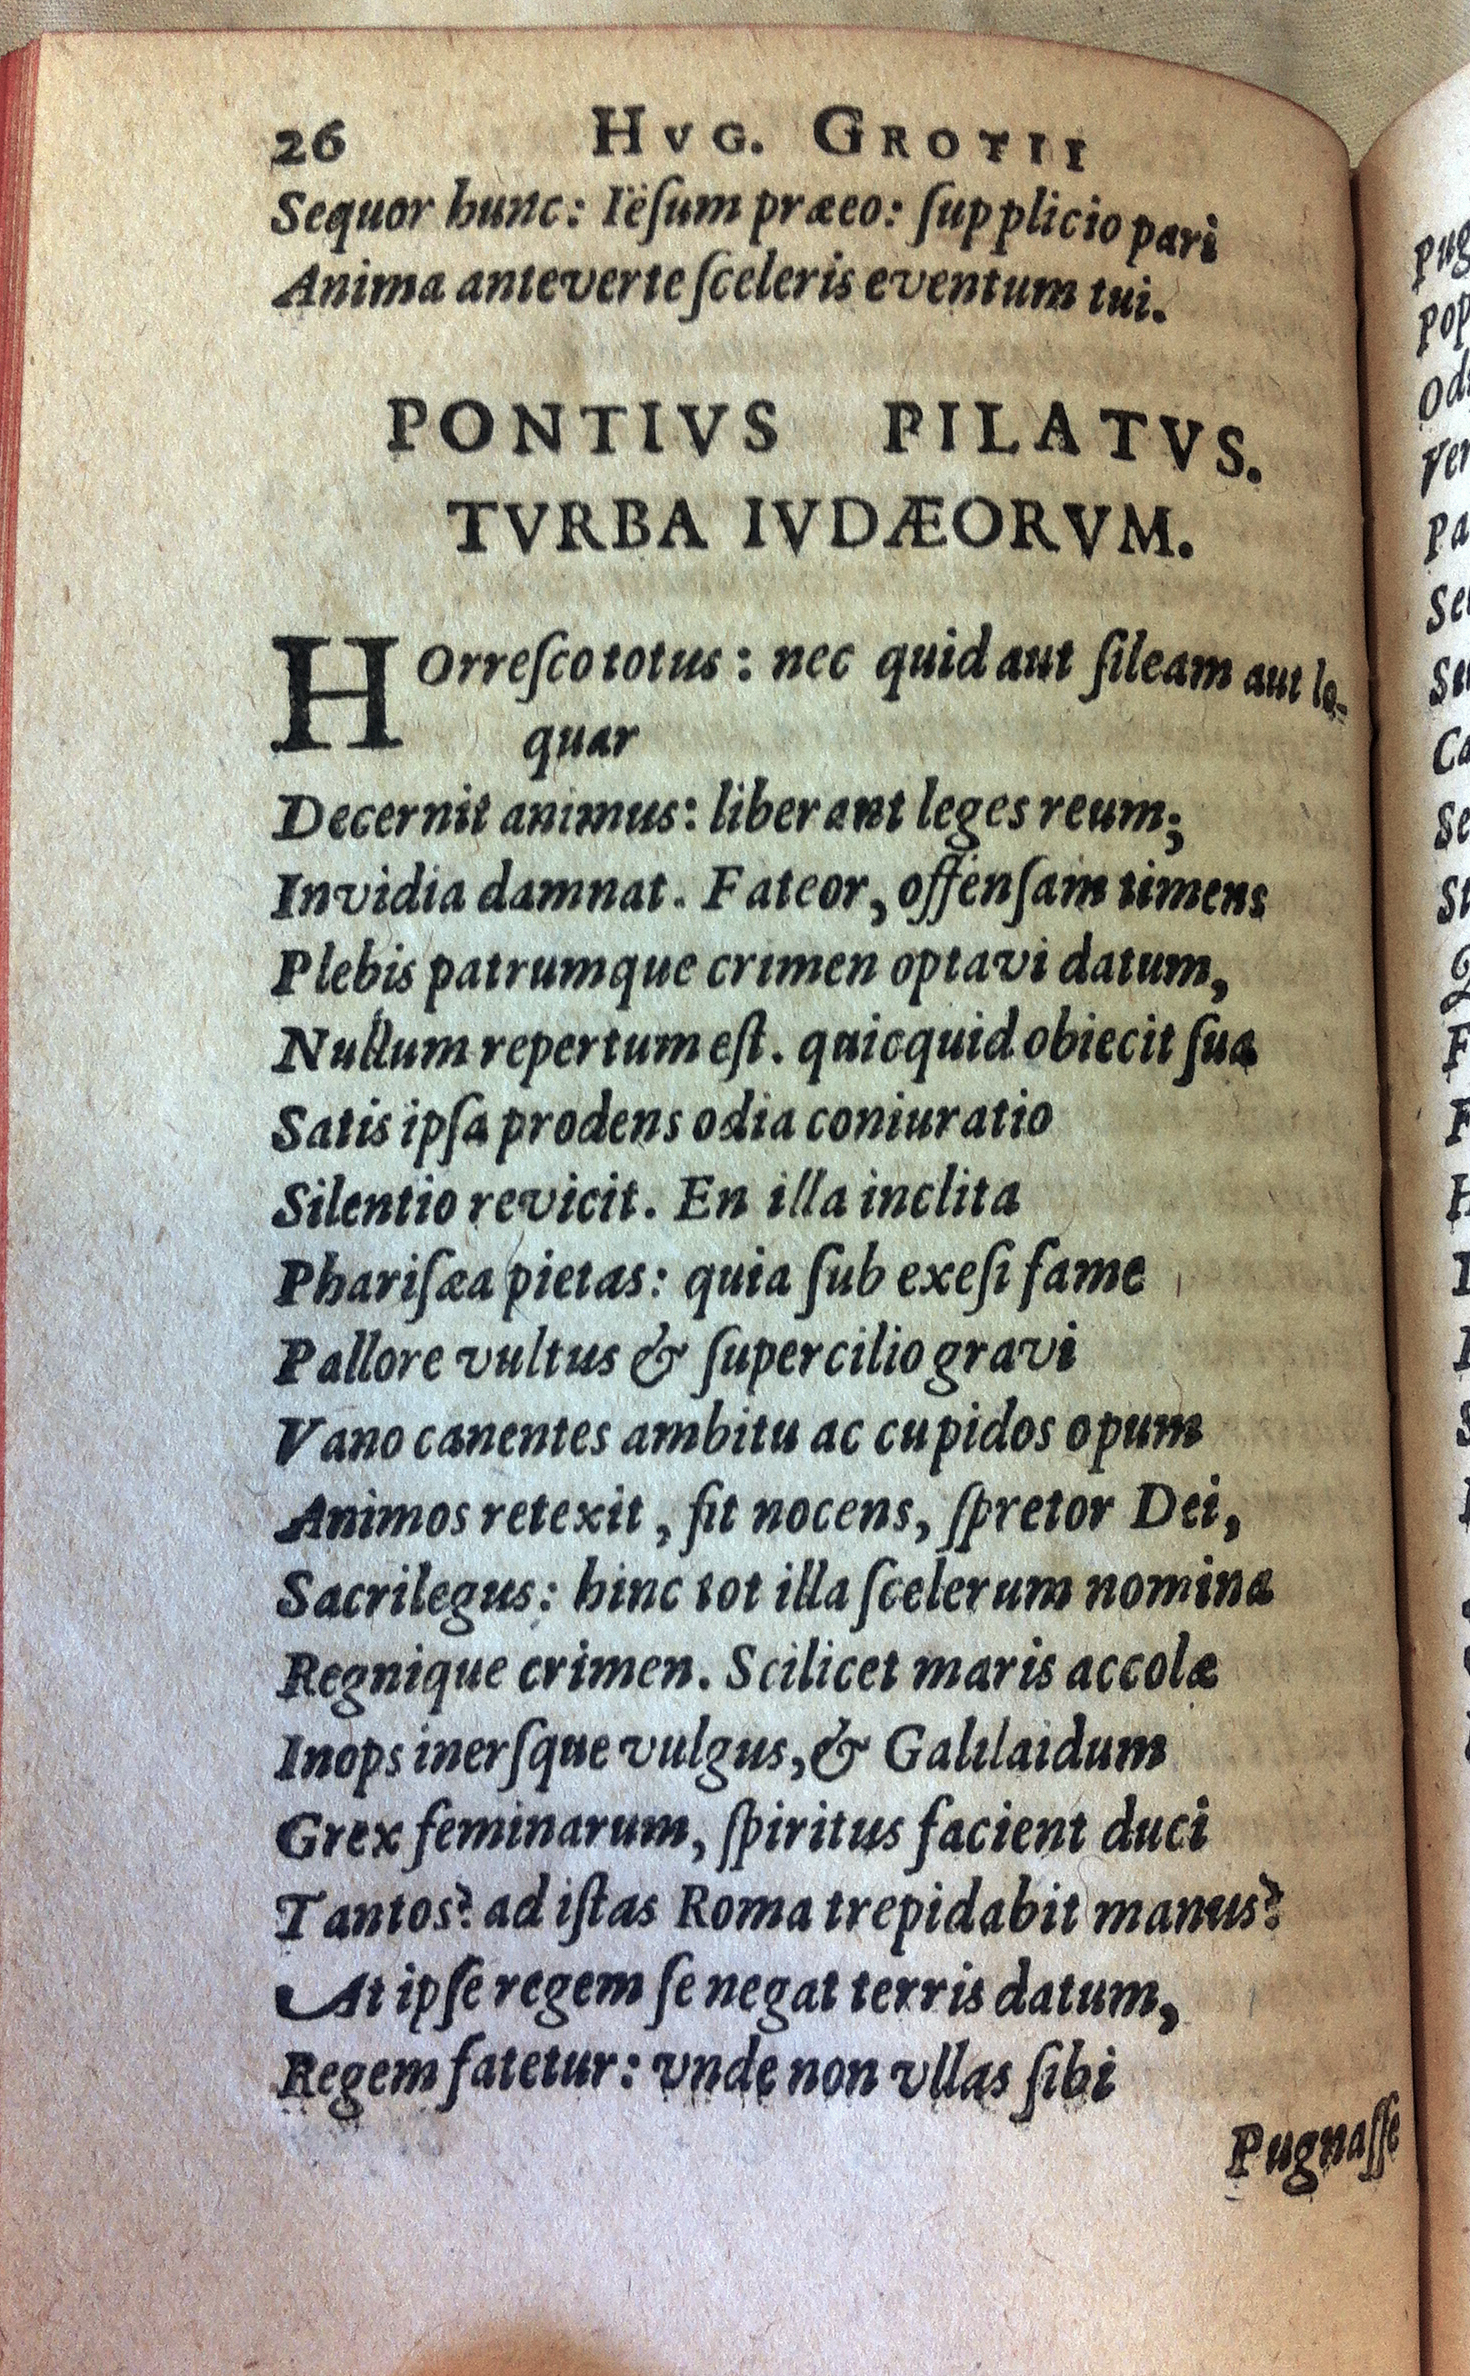 26 HVG. GROTII
Sequor hunc: Iëſum præeo: ſupplicio pari
Anima anteverte ſceleris eventum tui.
PONTIVS PILATVS.
TVRBA IVDÆORVM.
HOrreſco totus: nec quid aut ſileam aut lo-
quar
Decernit animus: liberant leges reum;
Invidia damnat. Fateor, offenſam timens
Plebis patrumque crimen optavi datum,
Nullum repertum eſt. quicquid obiecit ſua
Satis ipſa prodens odia coniuratio
Silentio revicit. En illa inclita
Phariſæa pietas: quia ſub exeſi fame
Pallore vultus & ſupercilio gravi
Vano canentes ambitu ac cupidos opum
Animos retexit, fit nocens, ſpretor Dei,
Sacrilegus: hinc tot illa ſcelerum nomina
Regnique crimen. Scilicet maris accolæ
Inops inerſque vulgus, & Galılaidum
Grex feminarum, ſpiritus facient duci
Tantos? ad iſtas Roma trepidabit manus?
At ipſe regem ſe negat terris datum,
Regem fatetur: vnde non vllas ſibi
Pugnaſſe